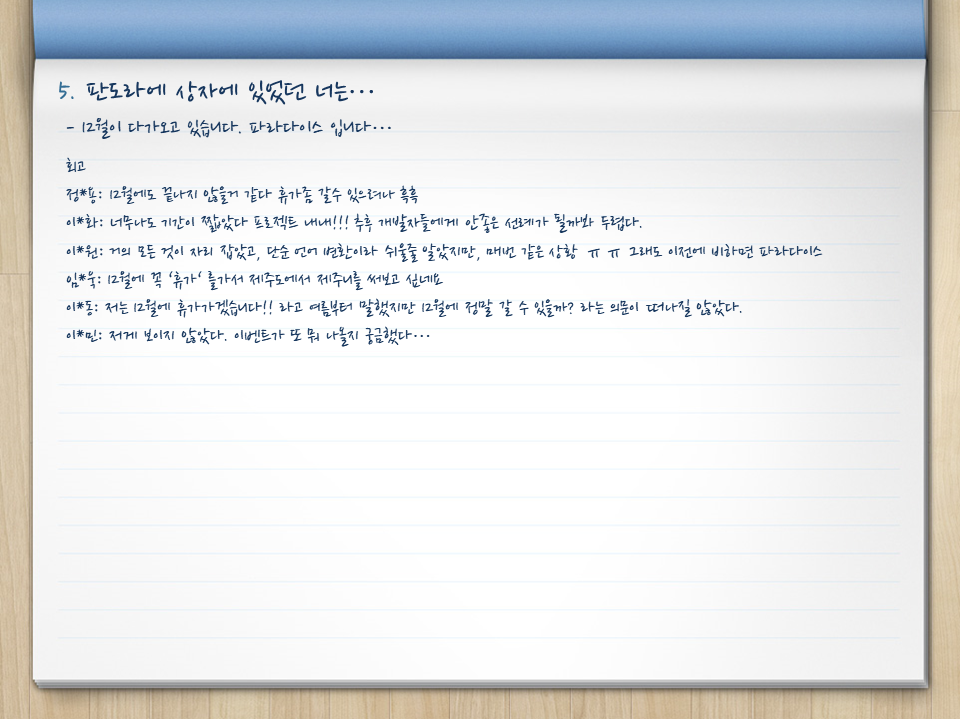 5. 판도라에 상자에 있었던 너는...
- 12월이 다가오고 있습니다. 파라다이스 입니다...
회고
정*용: 12월에도 끝나지 않을거 같다 휴가좀 갈수 있으려나 흑흑
이*화: 너무나도 기간이 짧았다 프로젝트 내내!!! 추후 개발자들에게 안좋은 선례가 될까봐 두렵다.
이*원: 거의 모든 것이 자리 잡았고, 단순 언어 변환이라 쉬울줄 알았지만, 매번 같은 상황 ㅠ ㅠ 그래도 이전에 비하면 파라다이스
임*욱: 12월에 꼭 '휴가' 를가서 제주도에서 제주니를 써보고 싶네요
이*동: 저는 12월에 휴가가겠습니다!! 라고 여름부터 말했지만 12월에 정말 갈 수 있을까? 라는 의문이 떠나질 않았다.
이*민: 저게 보이지 않았다. 이벤트가 또 뭐 나올지 궁금했다...